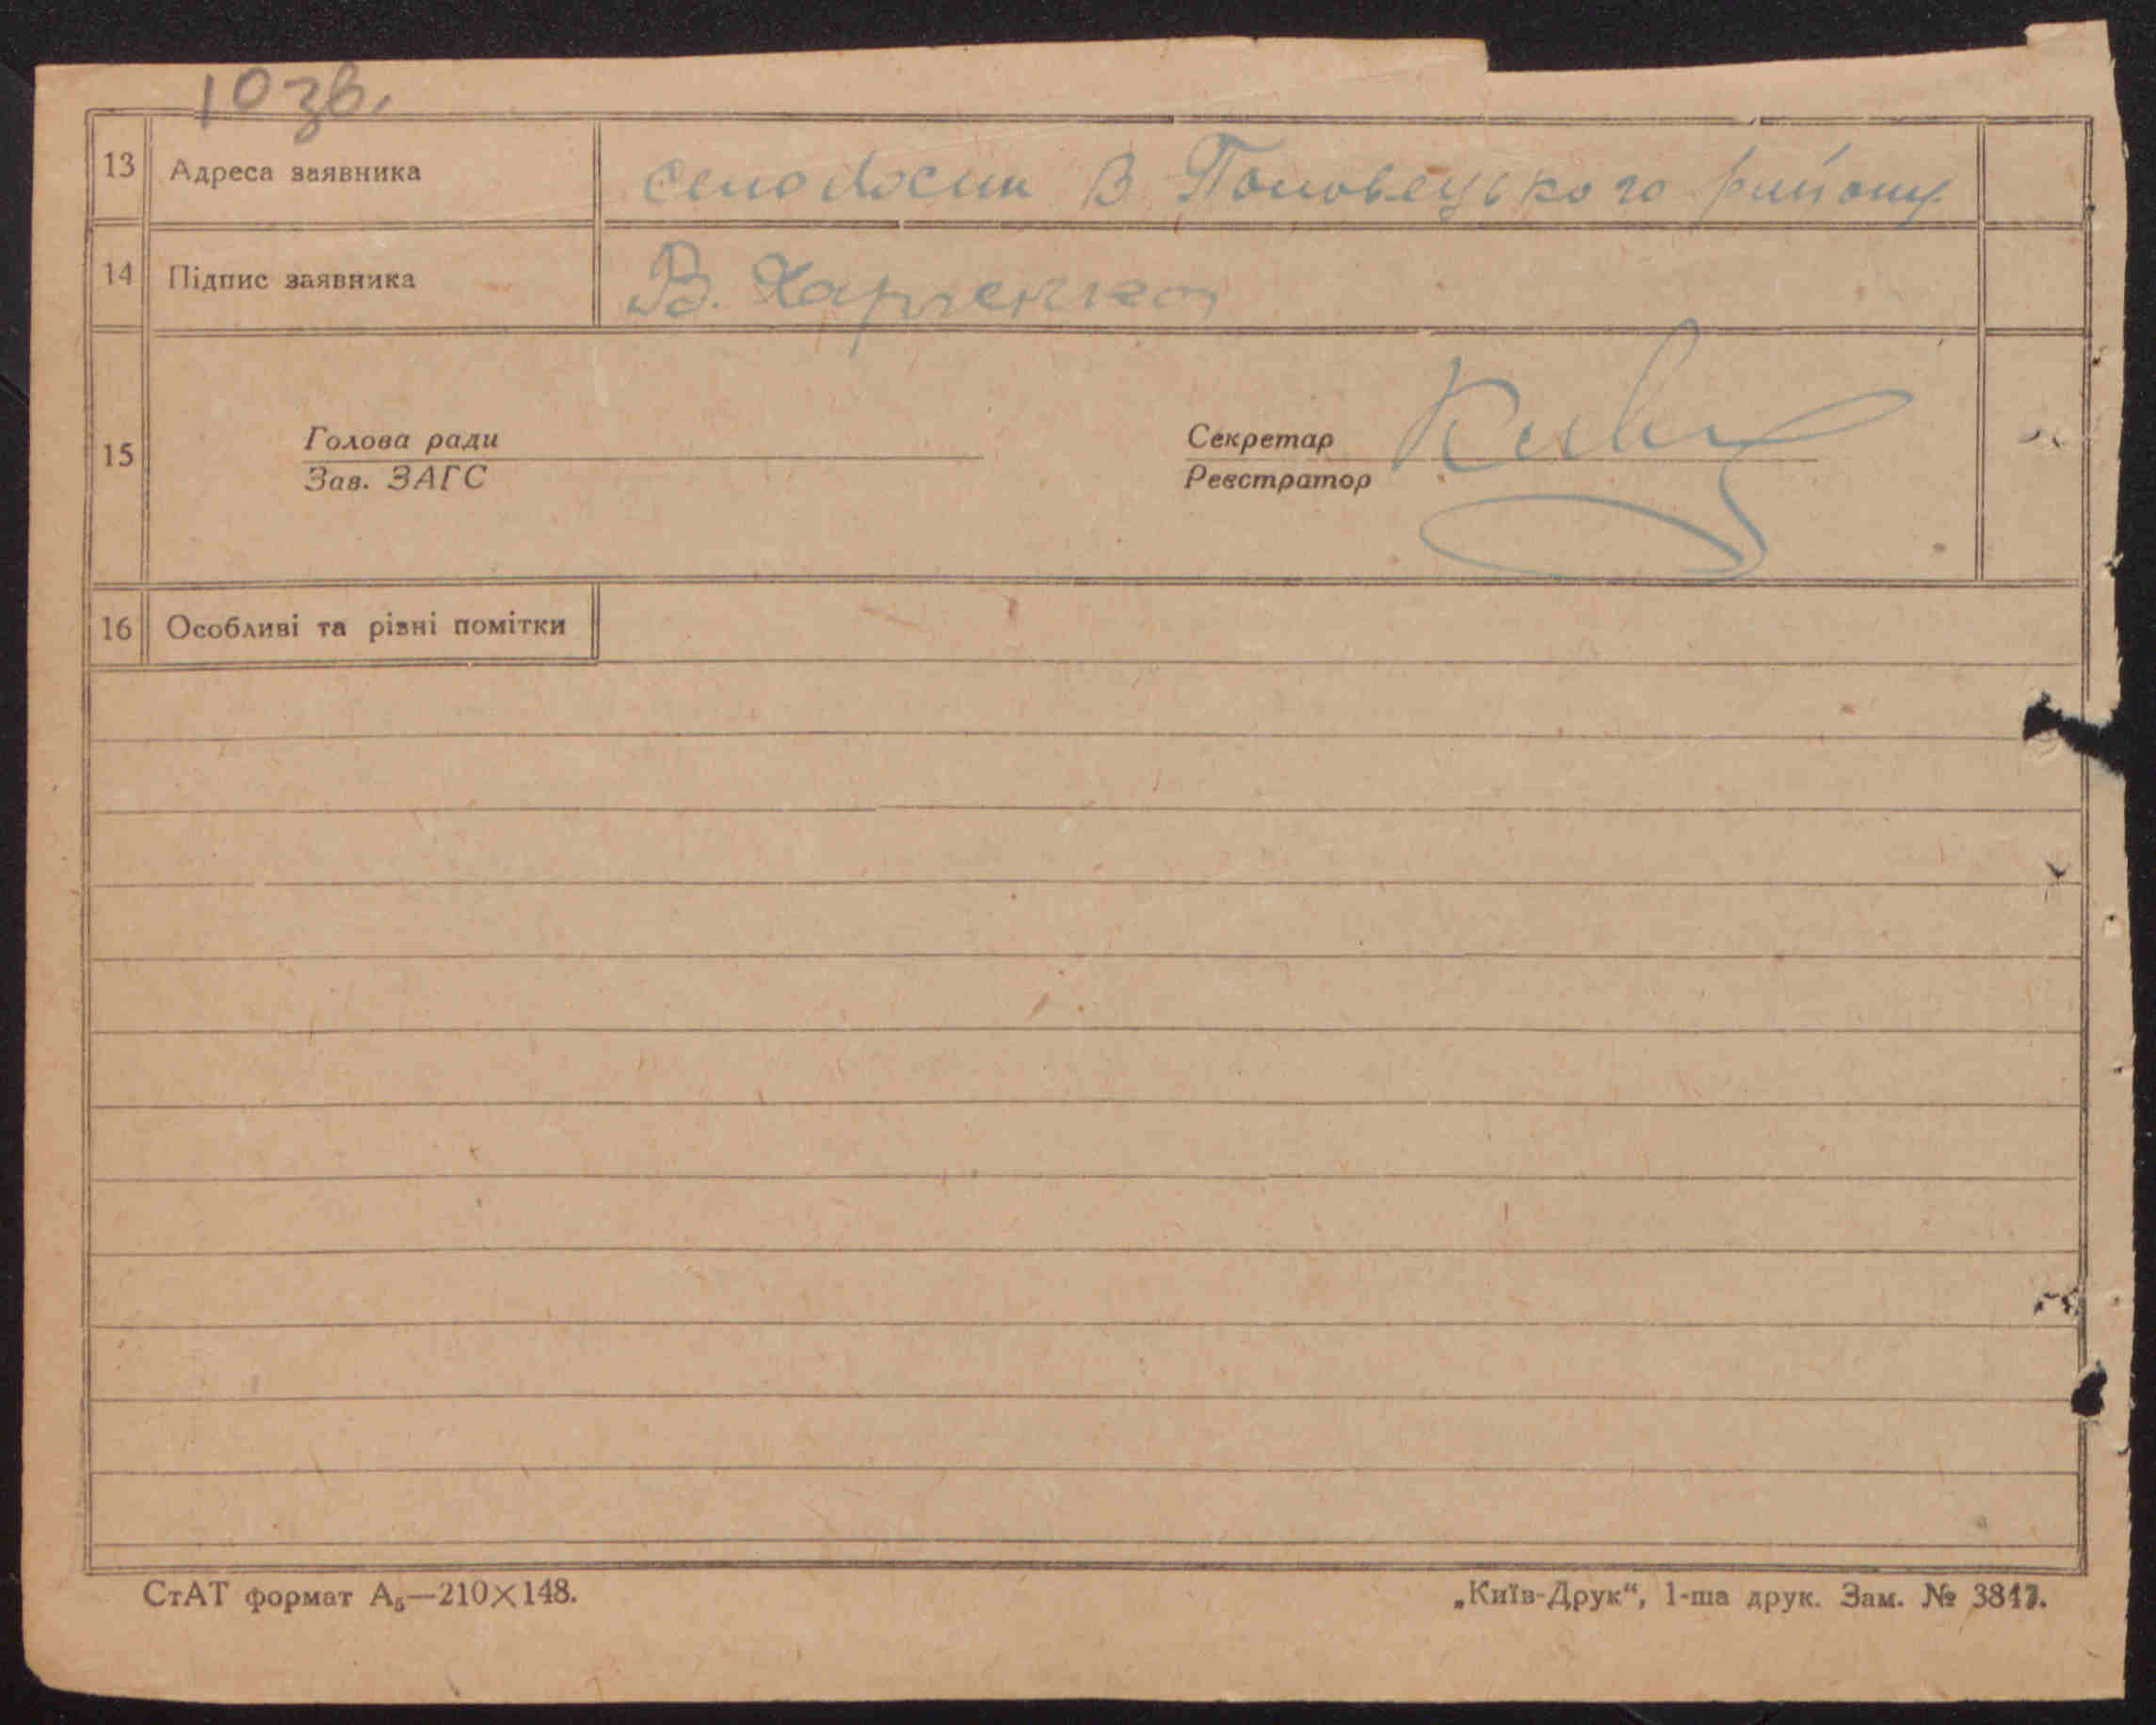 10 зв.
13 Адреса заявника село В Половецького району
14 Підпис заявника В. Харченко
15 Голова ради Секретар
Зав. ЗАГС Реєстратор
16 Особливі та різні помітки
СтАТ формат А₅—210×148. „Київ-Друк“, 1-ша друк. Зам. № 3847.